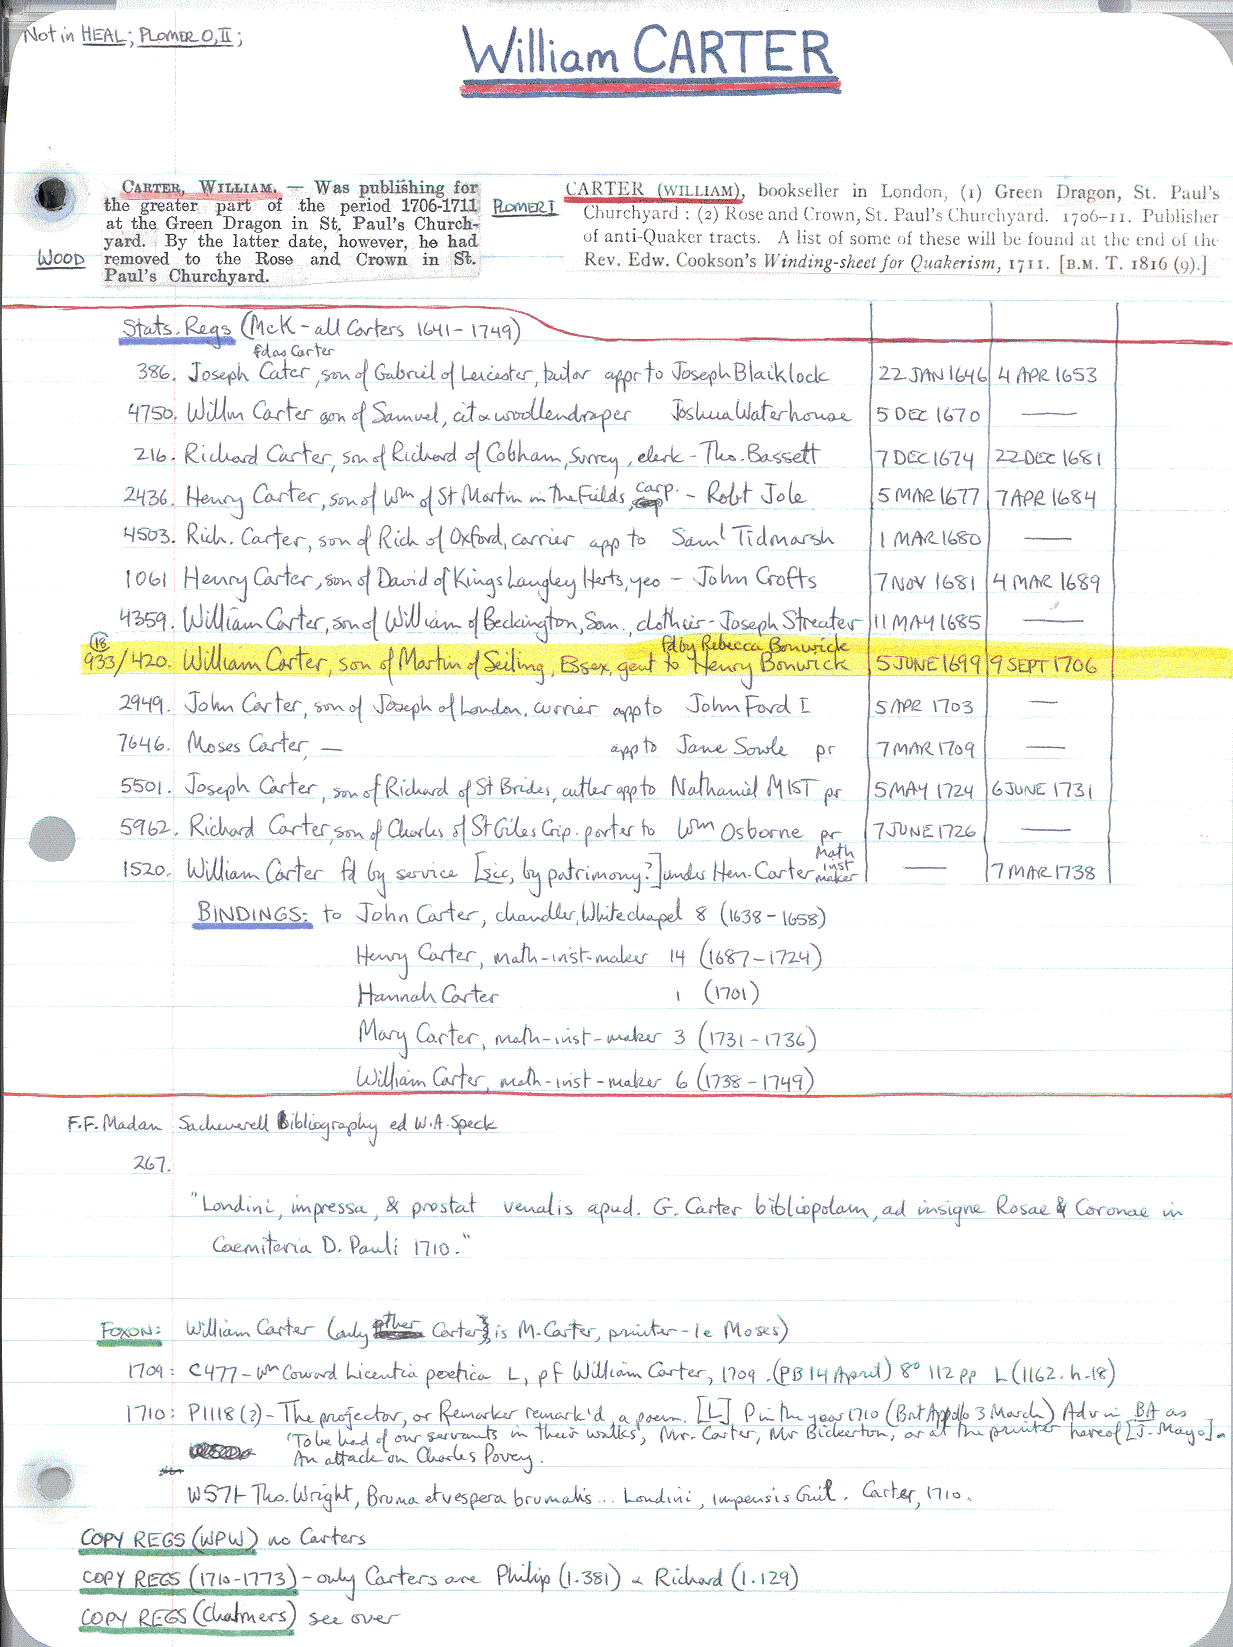 Not in HEAL; PLOMER O, II;
William CARTER
CARTER, WILLIAM. — Was publishing for
the greater part of the period 1706-1711
at the Green Dragon in St. Paul's Church-
yard. By the latter date, however, he had
removed to the Rose and Crown in St.
Paul's Churchyard.
WOOD
PLOMER I
CARTER (WILLIAM), bookseller in London, (1) Green Dragon, St. Paul's
Churchyard : (2) Rose and Crown, St. Paul's Churchyard. 1706–11. Publisher
of anti-Quaker tracts. A list of some of these will be found at the end of the
Rev. Edw. Cookson's Winding-sheet for Quakerism, 1711. [B.M. T. 1816 (9).]
Stats. Regs (McK - all Carters 1641 - 1749)
fd as Carter
386. Joseph Cater, son of Gabriel of Leicester, tailor appr to Joseph Blaiklock 22 JAN 1646 4 APR 1653
4750. Willm Carter son of Samuel, cit & woollendraper Joshua Waterhouse 5 DEC 1670 —
216. Richard Carter, son of Richard of Cobham, Surrey, clerk - Tho. Bassett 7 DEC 1674 22 DEC 1681
2436. Henry Carter, son of Wm of St Martin in the Fields, carp. - Robt Jole 5 MAR 1677 7 APR 1684
4503. Rich. Carter, son of Rich of Oxford, carrier app to Saml Tidmarsh 1 MAR 1680 —
1061 Henry Carter, son of David of Kings Langley Herts, yeo - John Crofts 7 NOV 1681 4 MAR 1689
4359. William Carter, son of William of Beckington, Som., clothier - Joseph Streater 11 MAY 1685 —
18 fd by Rebecca Bonwick
933/420. William Carter, son of Martin of Seiling, Essex, gent to Henry Bonwick 5 JUNE 1699 9 SEPT 1706
2949. John Carter, son of Joseph of London, currier app to John Ford I 5 APR 1703 —
7646. Moses Carter, — app to Jane Sowle pr 7 MAR 1709 —
5501. Joseph Carter, son of Richard of St Brides, cutler app to Nathaniel MIST pr 5 MAY 1724 6 JUNE 1731
5962. Richard Carter, son of Charles of St Giles Crip. porter to Wm Osborne pr 7 JUNE 1726 —
1520. William Carter fd by service [sic, by patrimony?] under Hen. Carter Math inst maker — 7 MAR 1738
BINDINGS: to John Carter, chandler, Whitechapel 8 (1638 - 1658)
Henry Carter, math-inst-maker 14 (1687 - 1724)
Hannah Carter 1 (1701)
Mary Carter, math-inst-maker 3 (1731 - 1736)
William Carter, math-inst-maker 6 (1738 - 1749)
F.F. Madan Sacheverell Bibliography ed W.A. Speck
267.
"Londini, impressa, & prostat venalis apud. G. Carter bibliopolam, ad insigne Rosae & Coronae in
Coemiteria D. Pauli 1710."
FOXON: William Carter (only other Carter is M. Carter, printer - ie Moses)
1709: C477 - Wm Coward Licentia poetica L, pf William Carter, 1709. (PB 14 April) 8° 112 pp L (1162.h.18)
1710: P1118(?) - The projector, or Remarker remark'd, a poem. [L] P in the year 1710 (Brit Apollo 3 March) Adv in BA as
'To be had of our servants in their walks', Mr. Carter, Mr Bickerton, or at the printer hereof [J. Mayo].
An attack on Charles Povey.
W571 - Tho. Wright, Bruma et vespera brumalis... Londini, impensis Guil. Carter, 1710.
COPY REGS (WPW) no Carters
COPY REGS (1710-1773) - only Carters are Philip (1.381) & Richard (1.129)
COPY REGS (Chalmers) see over